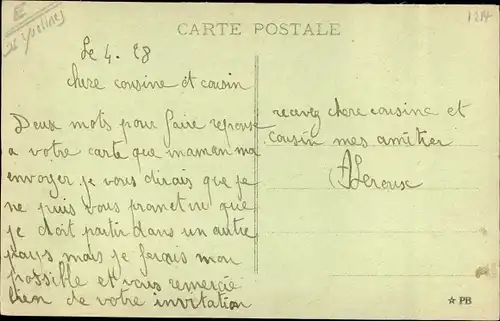 E
78 Yvelines
1214
CARTE POSTALE
Le 4. 28
chere cousine et cousin
Deux mots pour faire reponse
a votre carte que maman ma
envoyer. je vous dirais que je
ne puis vous prometre que
je doit partir dans un autre
pays mais je ferais mon
possible et vous remercie
bien de votre invitation
recevez chere cousine et
cousin mes amitier
A Leroux
PB